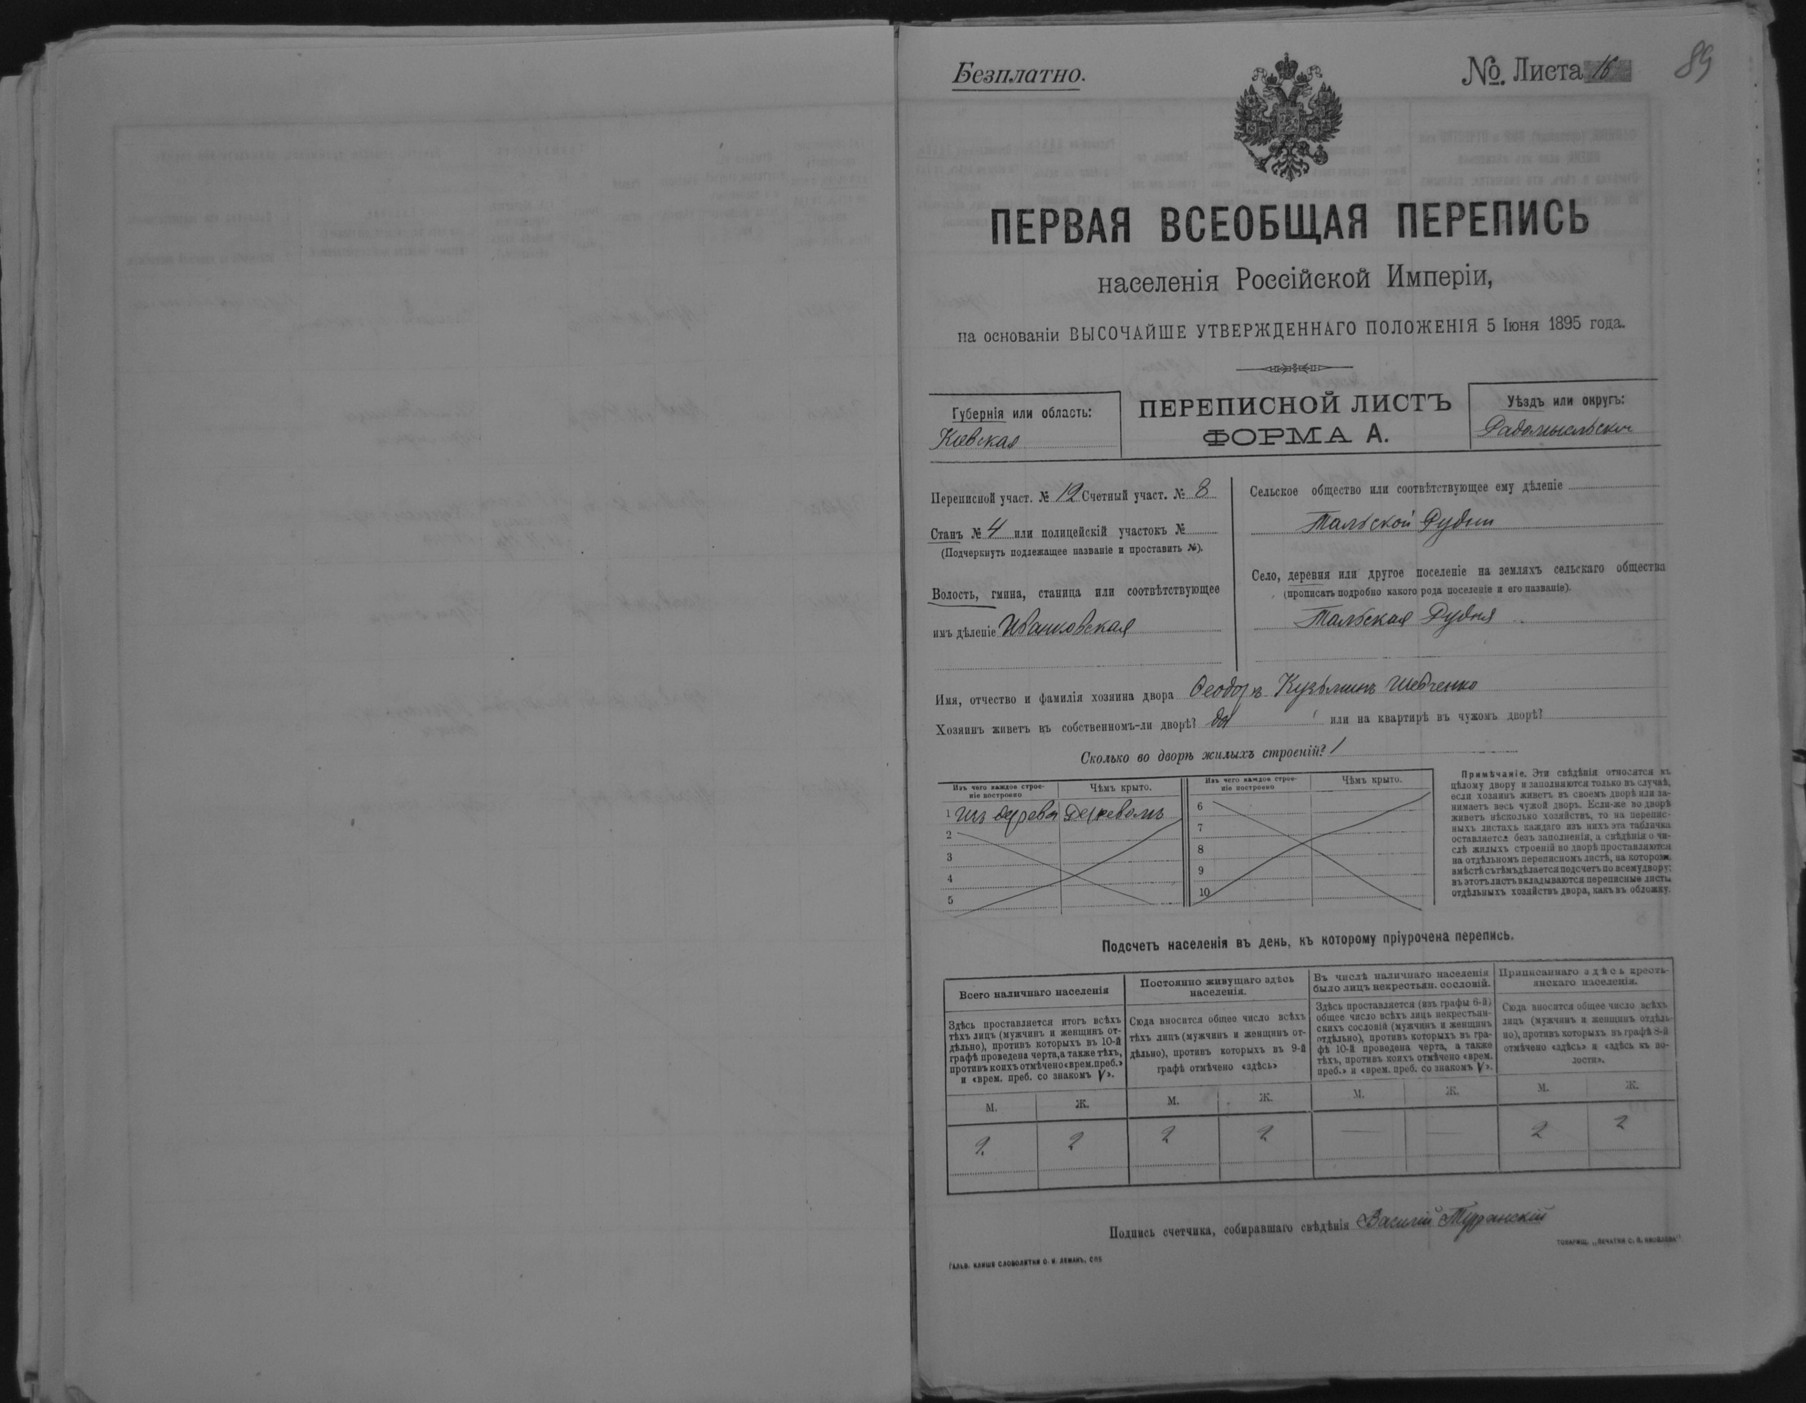 Безплатно.
№. Листа 16
89
ПЕРВАЯ ВСЕОБЩАЯ ПЕРЕПИСЬ
населенія Россійской Имперіи,
на основаніи ВЫСОЧАЙШЕ УТВЕРЖДЕННАГО ПОЛОЖЕНІЯ 5 Іюня 1895 года.
Губернія или область:
Кіевская
ПЕРЕПИСНОЙ ЛИСТЪ
ФОРМА А.
Уѣздъ или округъ:
Радомысльскій
Переписной участ. № 12 Счетный участ. № 8
Станъ № 4 или полицейскій участокъ №
(Подчеркнуть подлежащее названіе и проставить №).
Волость, гмина, станица или соотвѣтствующее
имъ дѣленіе Иванковская
Сельское общество или соотвѣтствующее ему дѣленіе
Тальской Рудни
Село, деревня или другое поселеніе на земляхъ сельскаго общества
(прописать подробно какого рода поселеніе и его названіе).
Тальская Рудня
Имя, отчество и фамилія хозяина двора Феодоръ Кузьминъ Шевченко
Хозяинъ живетъ въ собственномъ-ли дворѣ? да или на квартирѣ въ чужомъ дворѣ?
Сколько во дворѣ жилыхъ строеній? 1
Изъ чего каждое строе-
ніе построено
Чѣмъ крыто.
1 изъ дерева Деревомъ
2
3
4
5
Изъ чего каждое строе-
ніе построено
Чѣмъ крыто.
6
7
8
9
10
Примѣчаніе. Эти свѣдѣнія относятся къ
цѣлому двору и заполняются только въ случаѣ,
если хозяинъ живетъ въ своемъ дворѣ или за-
нимаетъ весь чужой дворъ. Если-же во дворѣ
живетъ нѣсколько хозяйствъ, то на перепис-
ныхъ листахъ каждаго изъ нихъ эта табличка
оставляется безъ заполненія, а свѣдѣнія о чи-
слѣ жилыхъ строеній во дворѣ проставляются
на отдѣльномъ переписномъ листѣ, на которомъ
вмѣстѣ съ тѣмъ дѣлается подсчетъ по всему двору;
въ этотъ листъ вкладываются переписные листы
отдѣльныхъ хозяйствъ двора, какъ въ обложку.
Подсчетъ населенія въ день, къ которому пріурочена перепись.
Всего наличнаго населенія
Здѣсь проставляется итогъ всѣхъ
тѣхъ лицъ (мужчинъ и женщинъ от-
дѣльно), противъ которыхъ въ 10-й
графѣ проведена черта, а также тѣхъ,
противъ коихъ отмѣчено «врем. преб.»
и «врем. преб. со знакомъ V».
М. Ж.
2 2
Постоянно живущаго здѣсь
населенія.
Сюда вносится общее число всѣхъ
тѣхъ лицъ (мужчинъ и женщинъ от-
дѣльно), противъ которыхъ въ 9-й
графѣ отмѣчено «здѣсь»
М. Ж.
2 2
Въ числѣ наличнаго населенія
было лицъ некрестьян. сословій.
Здѣсь проставляется (изъ графы 6-й)
общее число всѣхъ лицъ некрестьян-
скихъ сословій (мужчинъ и женщинъ
отдѣльно), противъ которыхъ въ гра-
фѣ 10-й проведена черта, а также
тѣхъ, противъ коихъ отмѣчено «врем.
преб.» и «врем. преб. со знакомъ V».
М. Ж.
— —
Приписаннаго здѣсь кресть-
янскаго населенія.
Сюда вносится общее число всѣхъ
лицъ (мужчинъ и женщинъ отдѣль-
но), противъ которыхъ въ графѣ 8-й
отмѣчено «здѣсь» и «здѣсь въ во-
лости».
М. Ж.
2 2
Подпись счетчика, собиравшаго свѣдѣнія Василій
ГАЛЬВ. КЛИШЕ СЛОВОЛИТНИ О. И. ЛЕМАНЪ, СПБ
ТОВАРИЩ. „ПЕЧАТНИ С. П. ЯКОВЛЕВА“